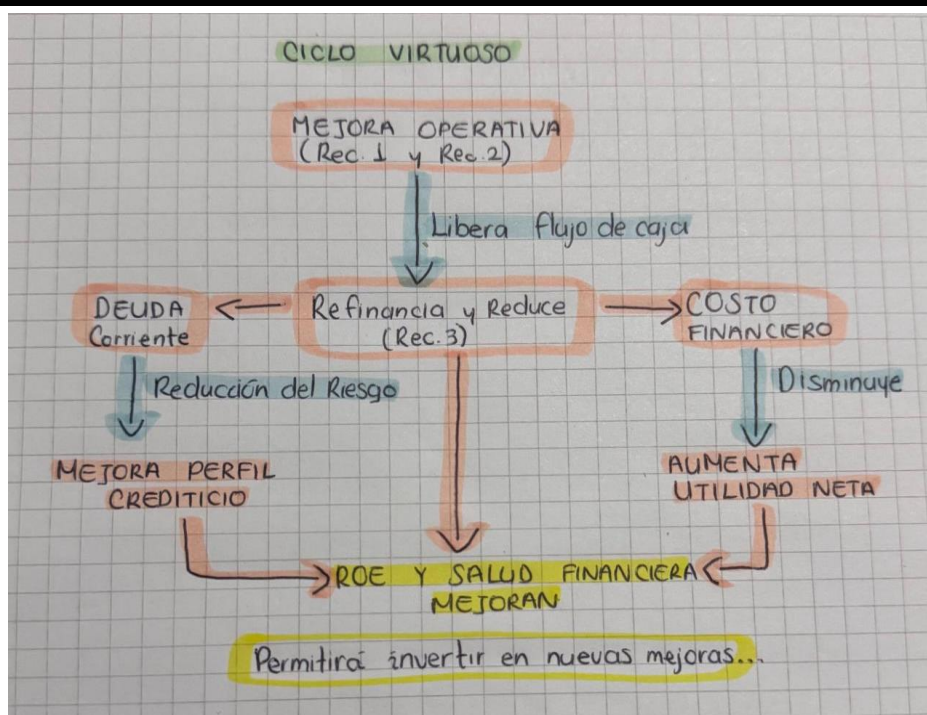 CICLO VIRTUOSO
MEJORA OPERATIVA
(Rec. 1 y Rec. 2)
Libera flujo de caja
DEUDA
Corriente
Refinancia y Reduce
(Rec. 3)
COSTO
FINANCIERO
Reducción del Riesgo
Disminuye
MEJORA PERFIL
CREDITICIO
AUMENTA
UTILIDAD NETA
ROE Y SALUD FINANCIERA
MEJORAN
Permitirá invertir en nuevas mejoras...